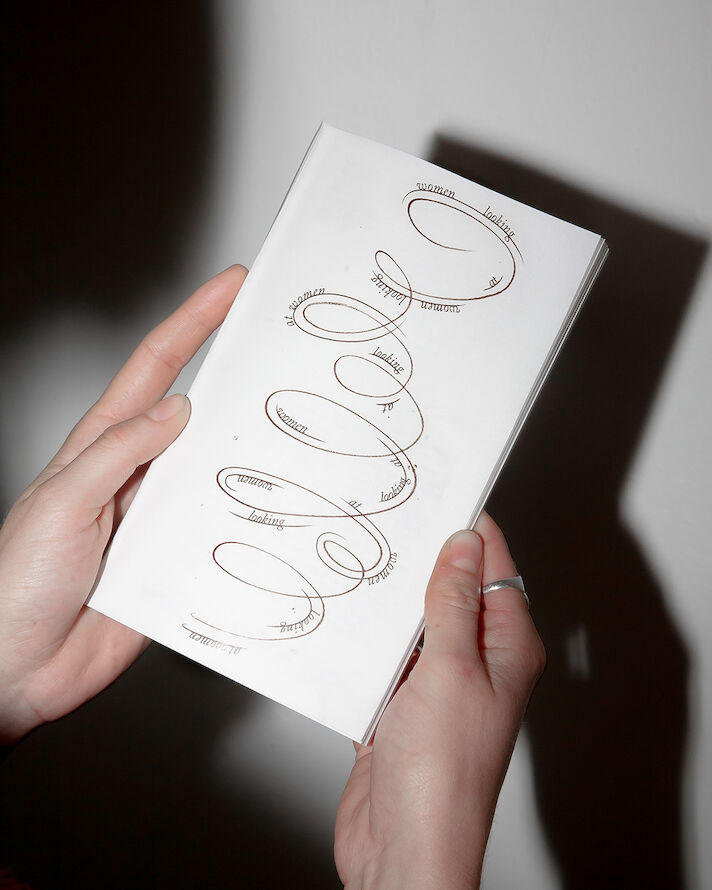 women looking
at
women looking
at women
looking
at
women
at
looking
women
at
looking
women
looking
at women